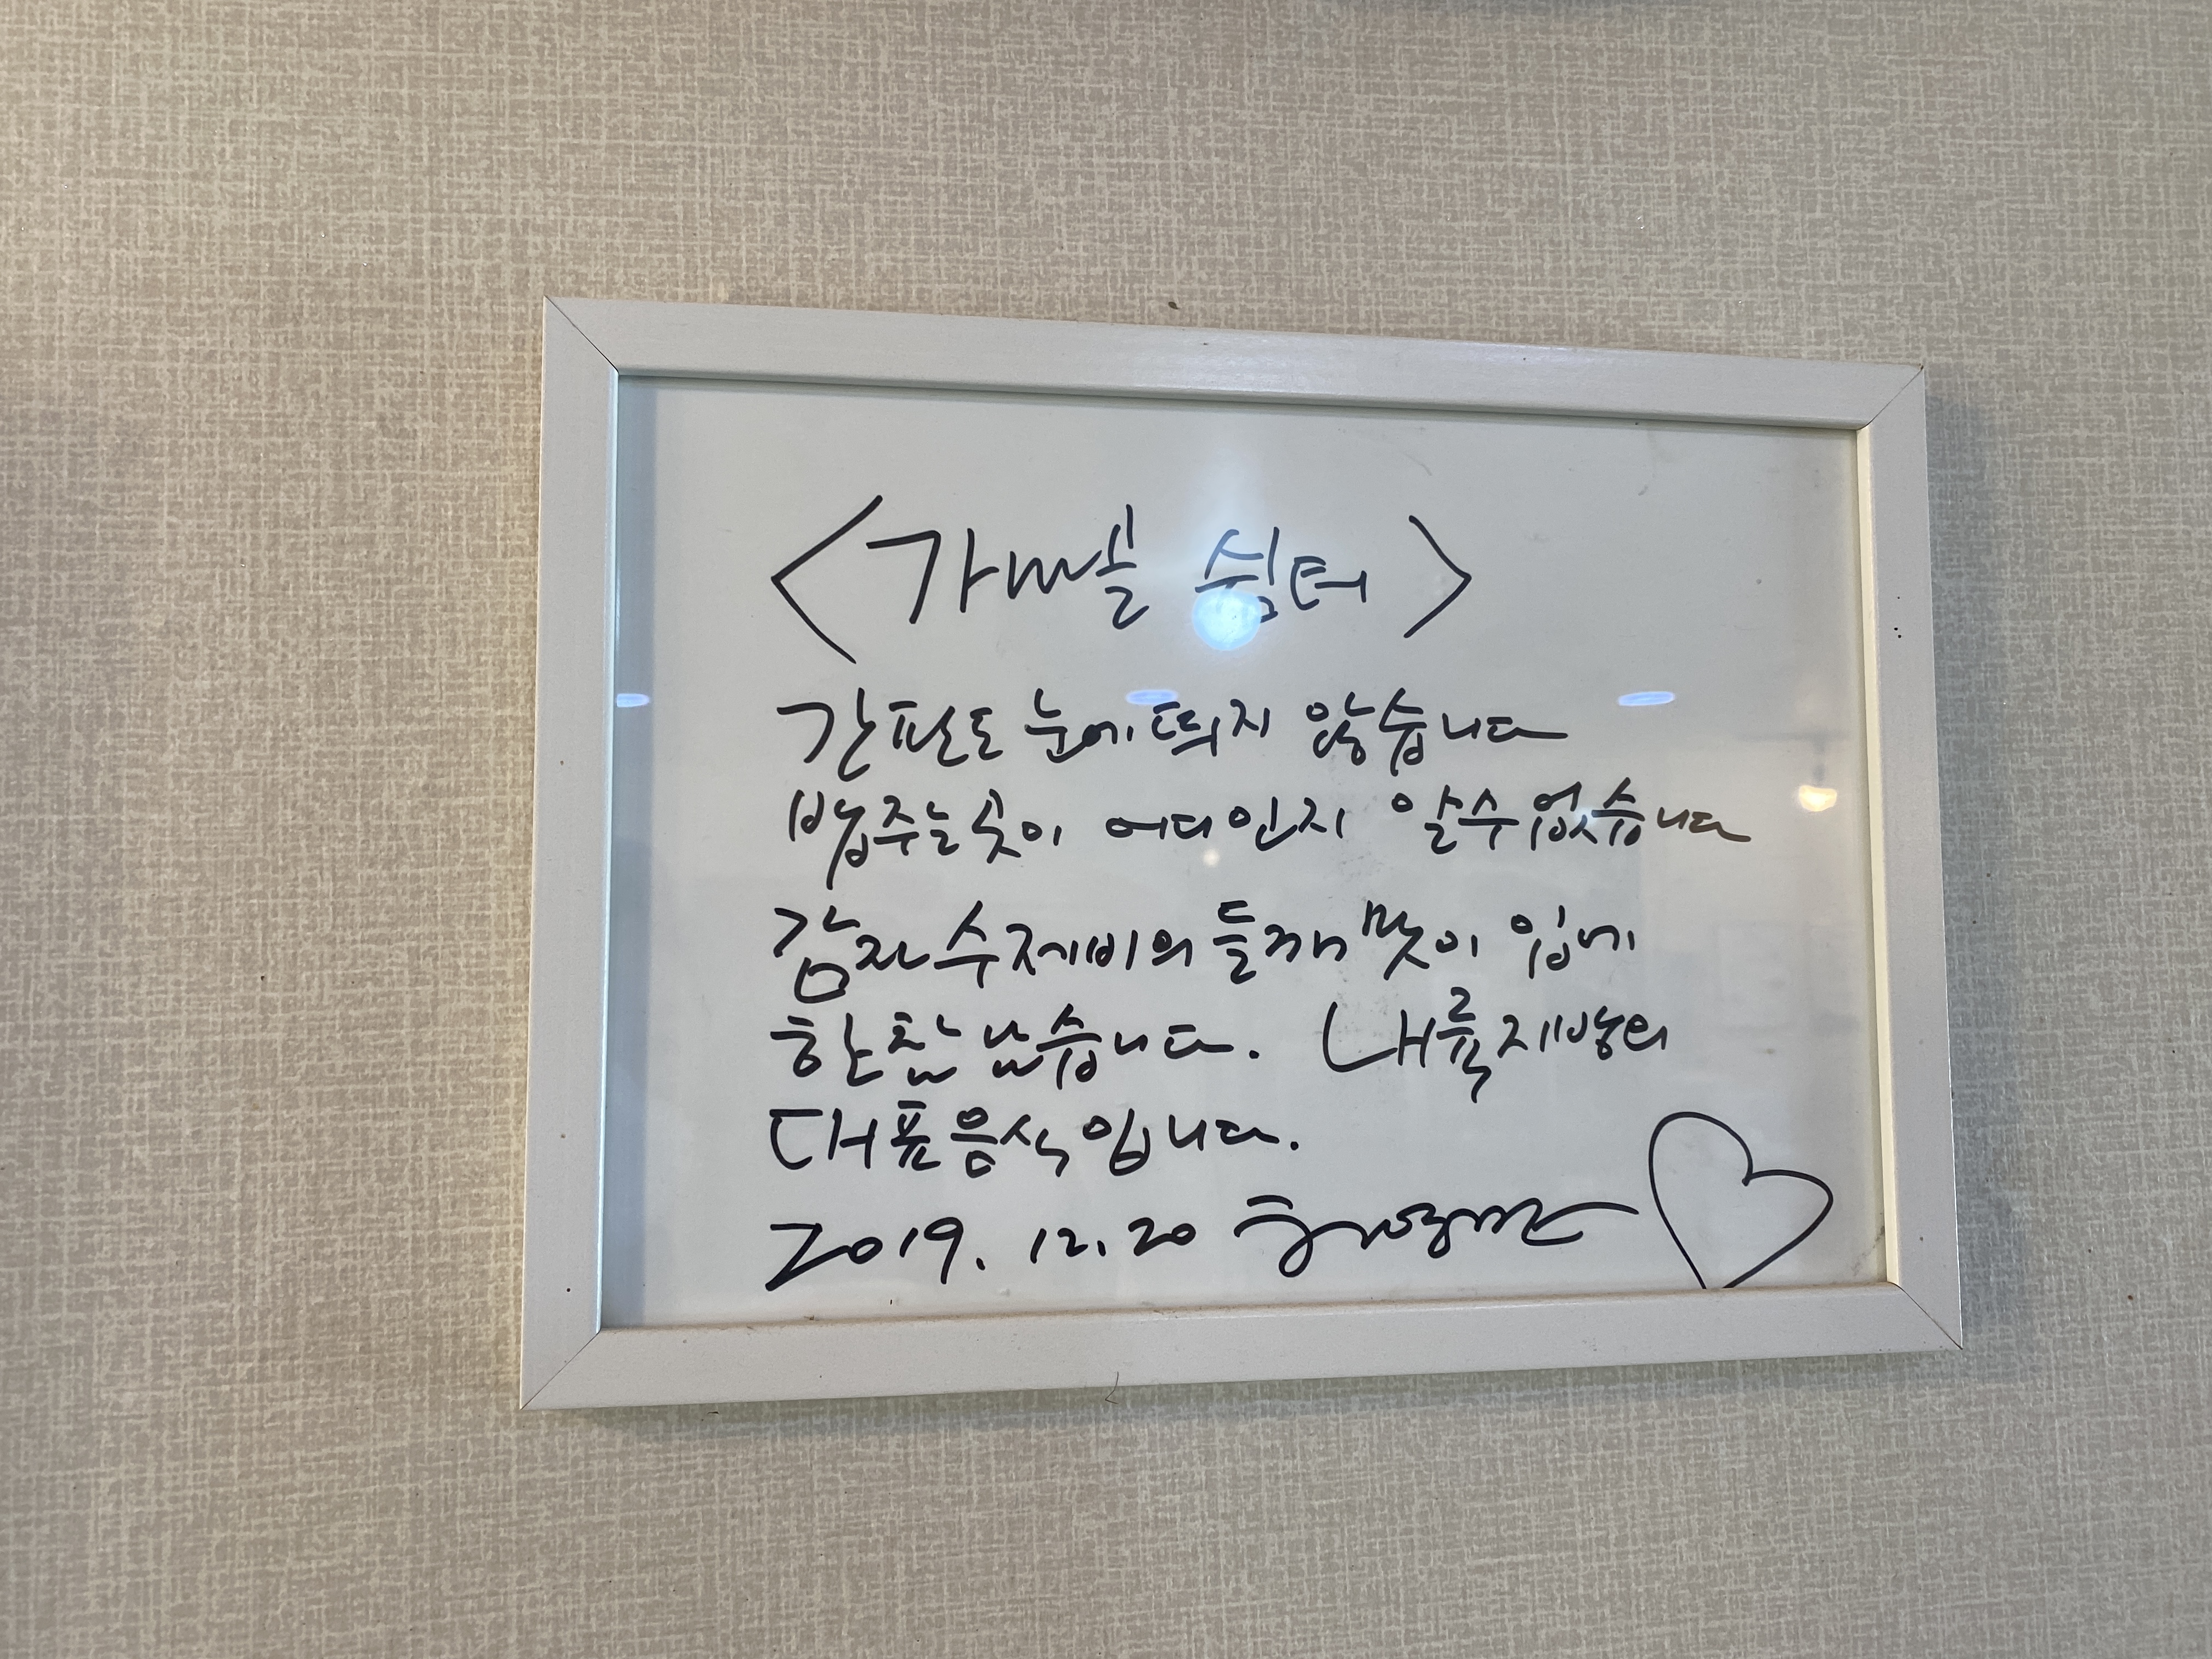 <가마솥 쉼터>
간판도 눈에 띄지 않습니다
밥주는 곳이 어디인지 알수 없습니다
감자수제비의 들깨맛이 입에
한참 남습니다. 내륙지방의
대표음식입니다.
2019. 12. 20 허영만